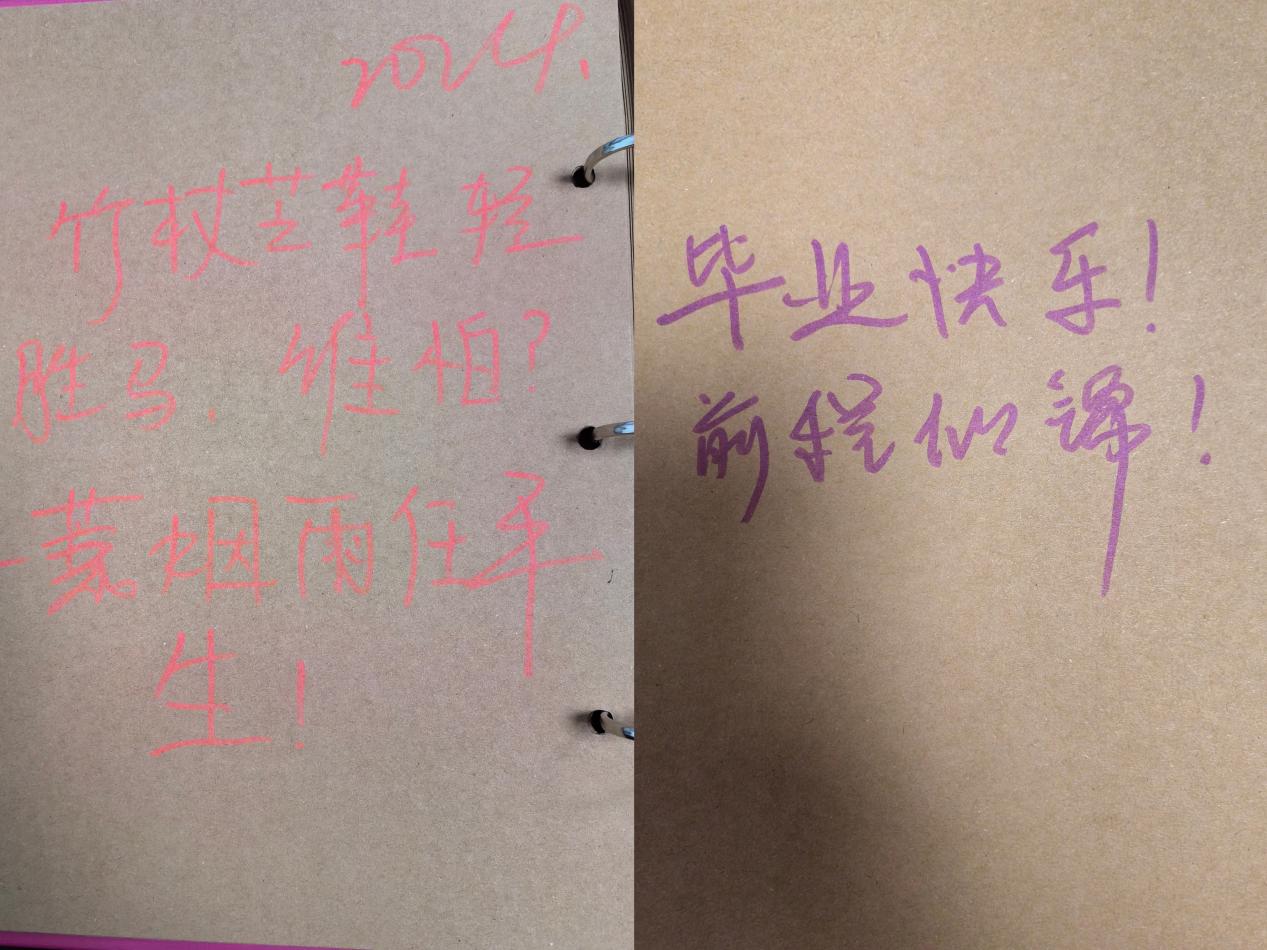 2024.
竹杖芒鞋轻
胜马. 谁怕?
一蓑烟雨任平
生!
毕业快乐!
前程似锦!